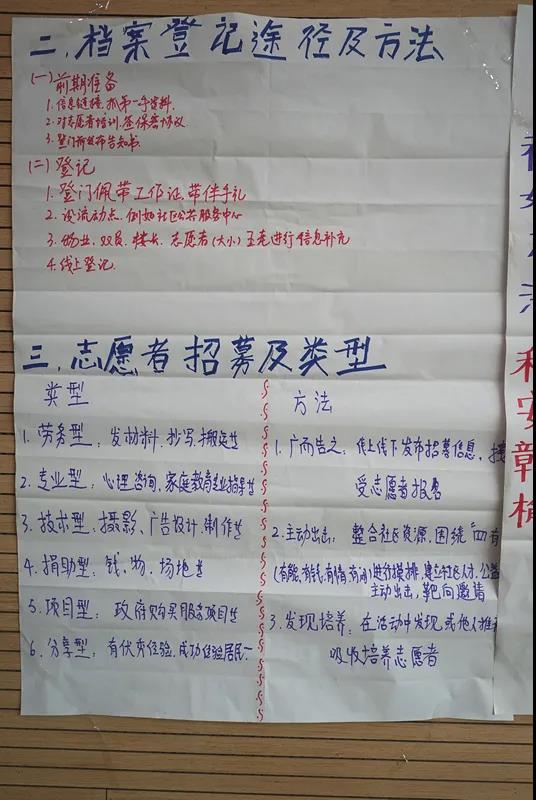 二、档案登记途径及方法
(一)前期准备
1. 信息链接、抓第一手资料.
2. 对志愿者培训、签保密协议
3. 登门前发布告知书.
(二)登记
1. 登门佩带工作证、带伴手礼
2. 设流动点、例如社区公共服务中心
3. 物业、双员、楼长、志愿者(大小)王老进行信息补充
4. 线上登记
三、志愿者招募及类型
类型
1. 劳务型：发材料、抄写、搬运等
2. 专业型：心理咨询、家庭教育专业指导等
3. 技术型：摄影、广告设计、制作等
4. 捐助型：钱、物、场地等
5. 项目型：政府购买服务项目等
6. 分享型：有优秀经验、成功经验居民
方法
1. 广而告之：线上线下发布招募信息、接
受志愿者报名
2. 主动出击：整合社区资源、围绕"四有
(有能、有钱、有情、有闲)进行摸排、建立社区人才、公益
主动出击、靶向邀请
3. 发现培养：在活动中发现、或他人推
吸收培养志愿者
和安章楠